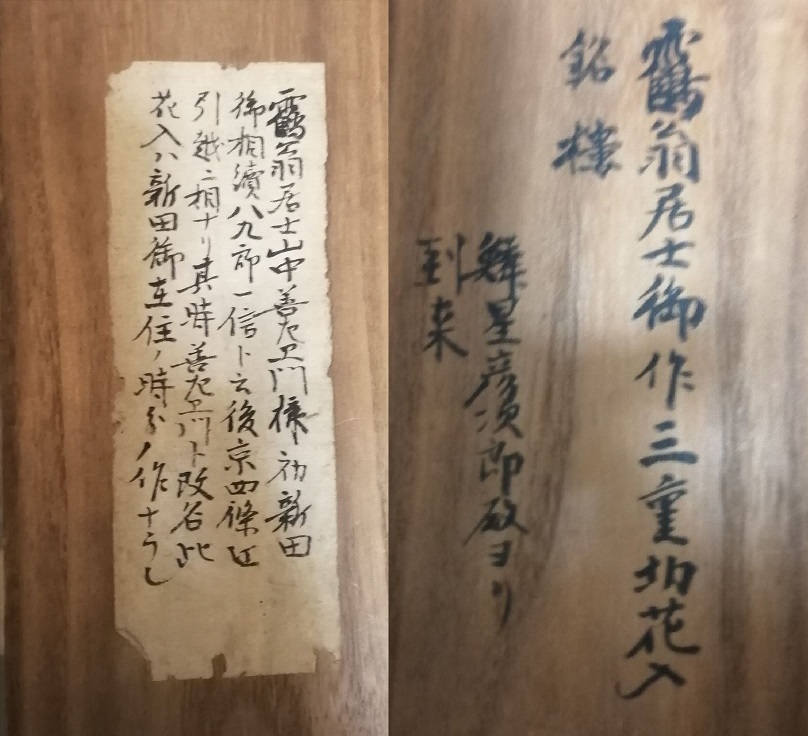 靏翁居士山中善左ヱ門様初新田
御相續八九郎一信ト云後京四條江
引越ニ相ナリ其時善左ヱ門ト改名此
花入ハ新田御在住ノ時分ノ作ナラン
靏翁居士御作三重切花入
銘 樓
星彦次郎殿ヨリ
到来